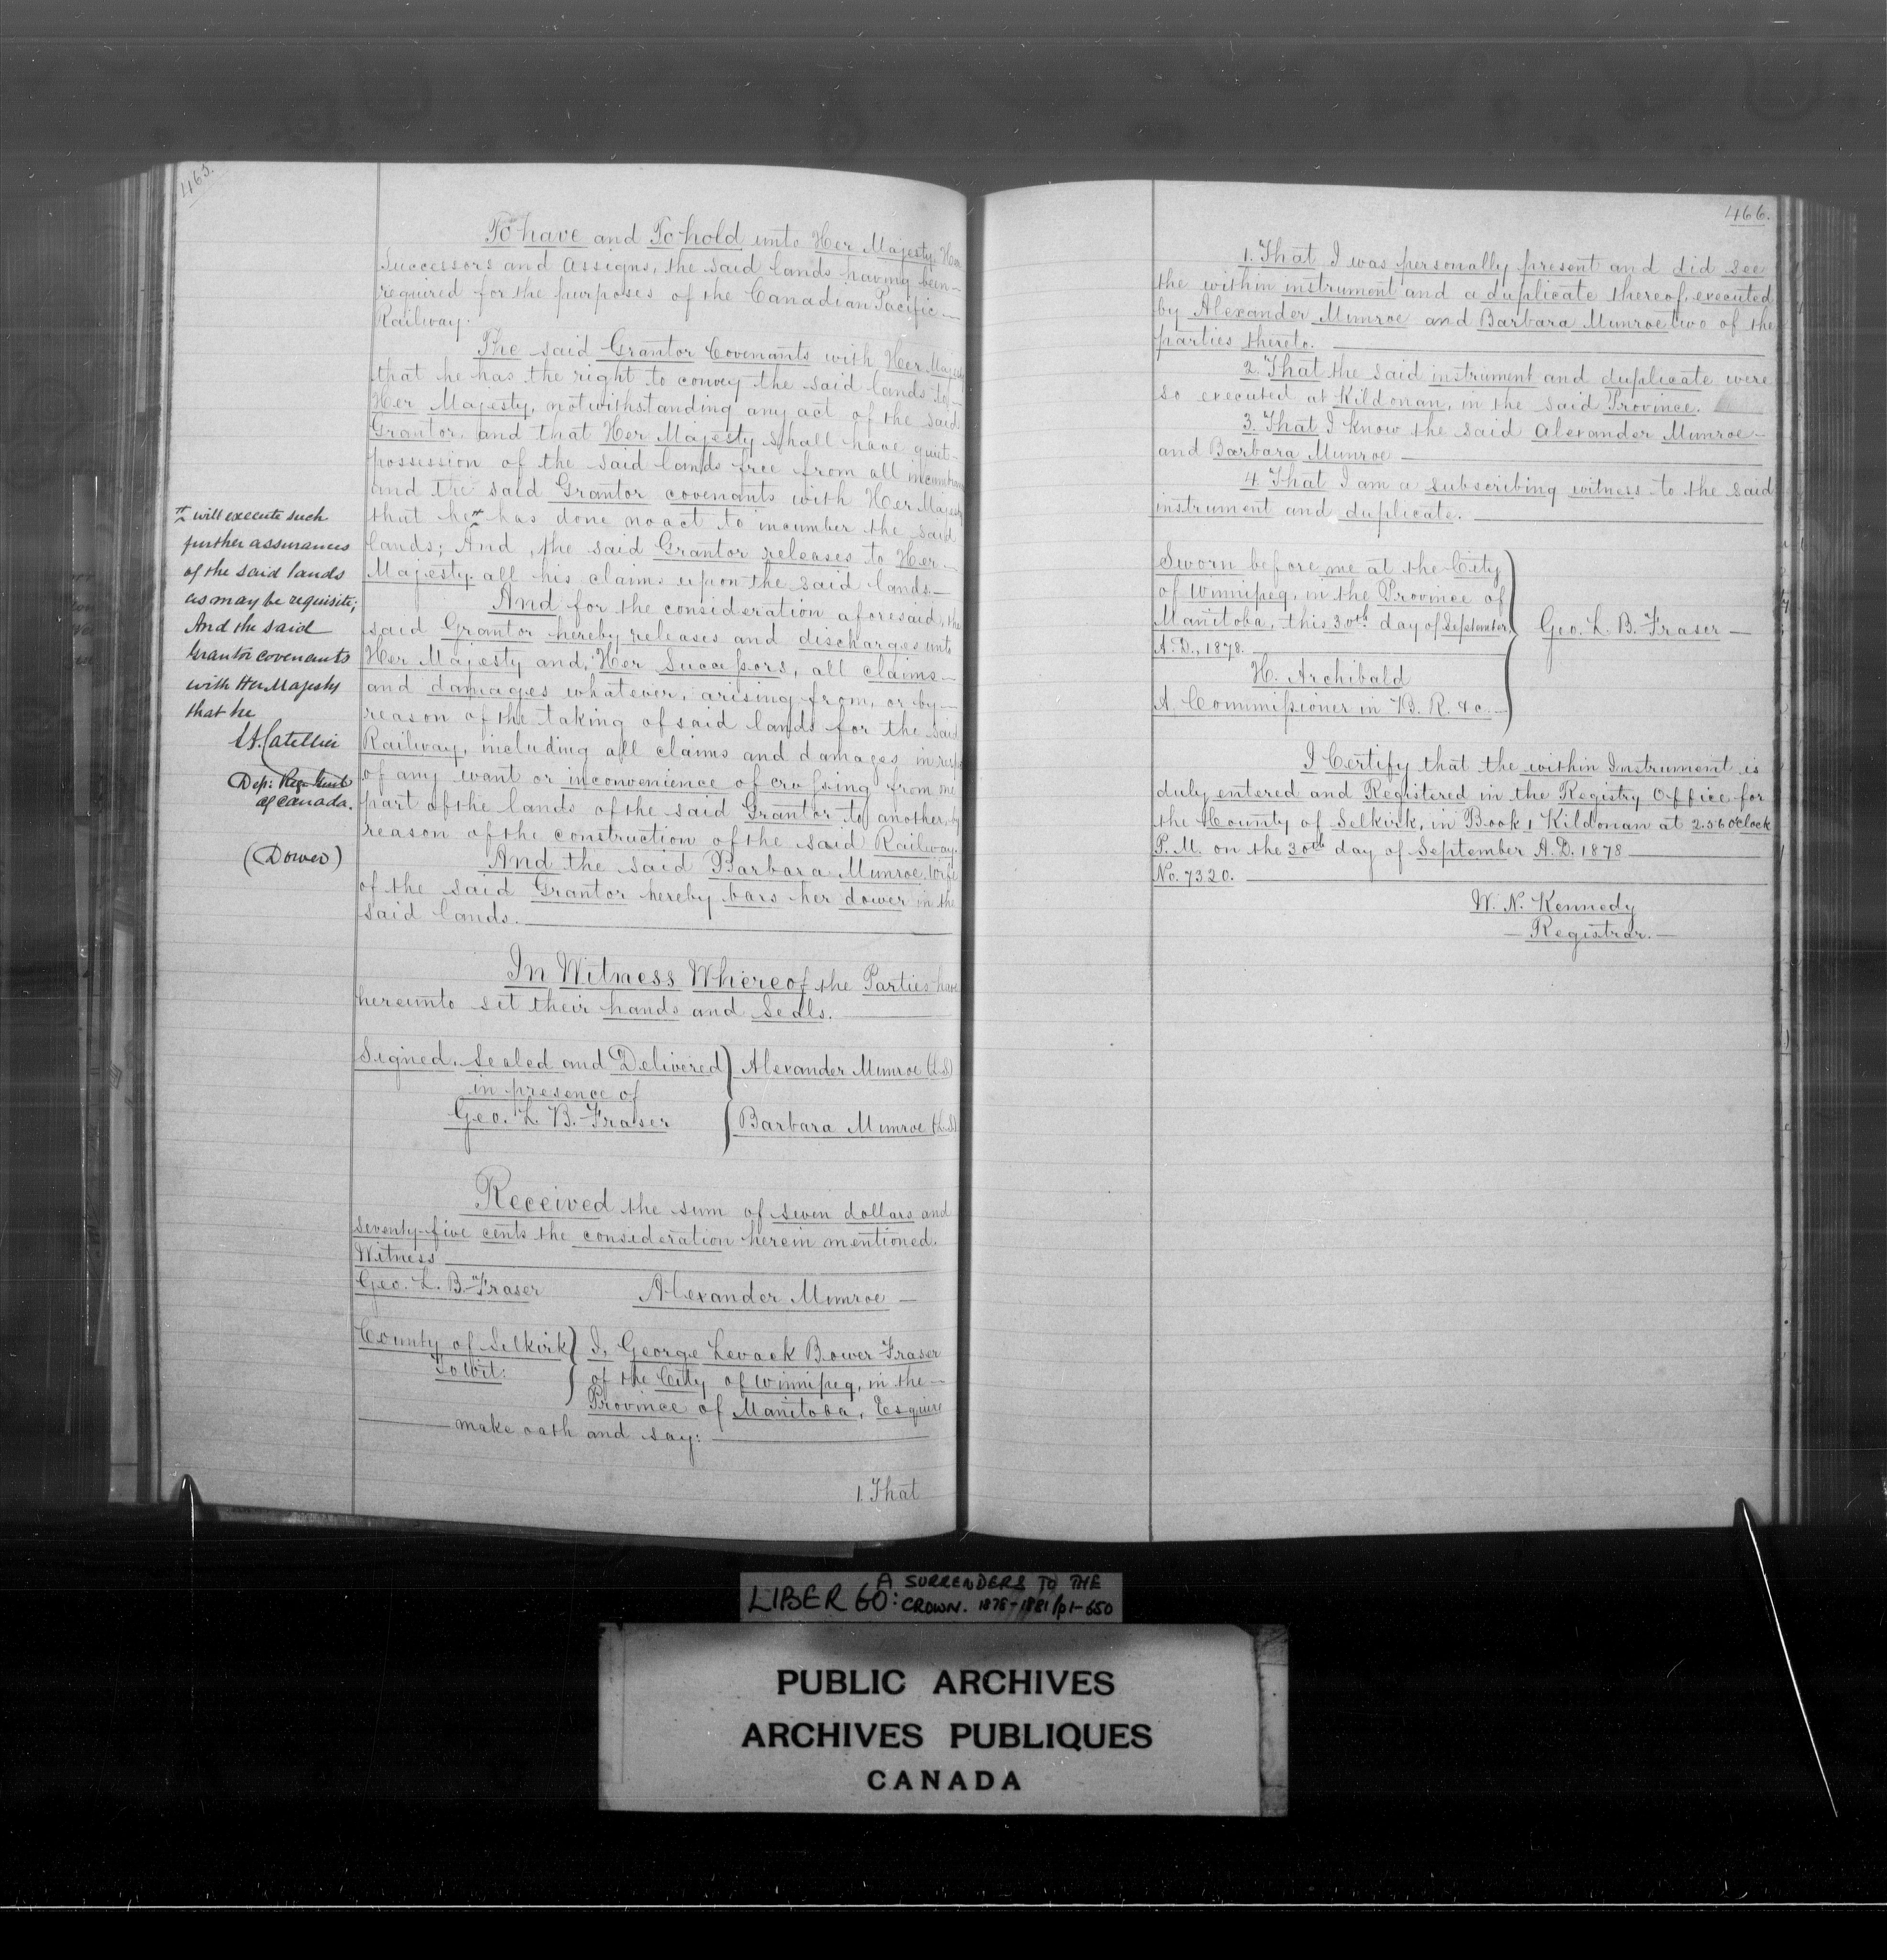 465.
To have and To hold unto Her Majesty, Her
Successors and Assigns, the said lands having been
required for the purposes of the Canadian Pacific
Railway.
The said Grantor Covenants with Her Majesty
that he has the right to convey the said lands to
Her Majesty, notwithstanding any act of the said
Grantor, and that Her Majesty shall have quiet
possession of the said lands free from all
and the said Grantor covenants with Her Majesty
that he # has done no act to incumber the said
lands; And, the said Grantor releases to Her
Majesty all his claims upon the said lands.
And for the consideration aforesaid, the
said Grantor hereby releases and discharges unto
Her Majesty and, Her Successors, all claims
and damages whatever, arising from, or by
reason of the taking of said lands for the said
Railway, including all claims and damages in
of any want or inconvenience of crossing from one
part of the lands of the said Grantor to another, by
reason of the construction of the said Railway.
And the said Barbara Munroe, wife
of the said Grantor hereby bars her dower in the
said lands.
# will execute such
further assurances
of the said lands
as may be requisite;
And the said
Grantor covenants
with Her Majesty
that he
Dep:
of Canada.
(Dower)
In Witness Whereof the Parties have
hereunto set their hands and Seals.
Signed, Sealed and Delivered } Alexander Munroe (L.S)
in presence of
Geo. L. B. Fraser
Barbara Munroe (L.S)
Received the sum of seven dollars and
seventy-five cents the consideration herein mentioned.
Witness
Geo. L. B. Fraser Alexander Munroe
County of Selkirk } I, George Levack Bower Fraser
To Wit: of the City of Winnipeg, in the
Province of Manitoba, Esquire
make oath and say:
1. That
466.
1. That I was personally present and did see
the within instrument and a duplicate thereof, executed
by Alexander Munroe and Barbara Munroe two of the
parties thereto.
2. That the said instrument and duplicate were
so executed at Kildonan, in the said Province.
3. That I know the said Alexander Munroe
and Barbara Munroe
4. That I am a subscribing witness to the said
instrument and duplicate.
Sworn before me at the City
of Winnipeg, in the Province of
Manitoba, this 30th day of September, } Geo. L. B. Fraser
A.D., 1878.
H. Archibald
A. Commissioner in B. R. &c.
I Certify that the within Instrument is
duly entered and Registered in the Registry Office for
the County of Selkirk, in Book 1 Kildonan at 2.56 o'Clock
P.M. on the 30th day of September A.D. 1878
No. 7320.
W. N. Kennedy
Registrar.
LIBER 60: A SURRENDERS TO THE
CROWN. 1878-1881/p1-650
PUBLIC ARCHIVES
ARCHIVES PUBLIQUES
CANADA